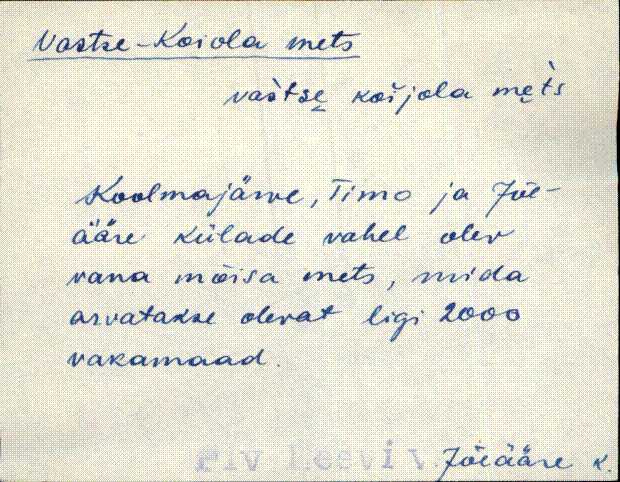 Vastse-Koiola mets
vàstse̬ koi̬jola me̬t̀s
Koolmajärve, Timo ja Jõe-
ääre külade vahel olev
vana mõisa mets, mida
arvatakse olevat ligi 2000
vakamaad.
Jõeääre k.